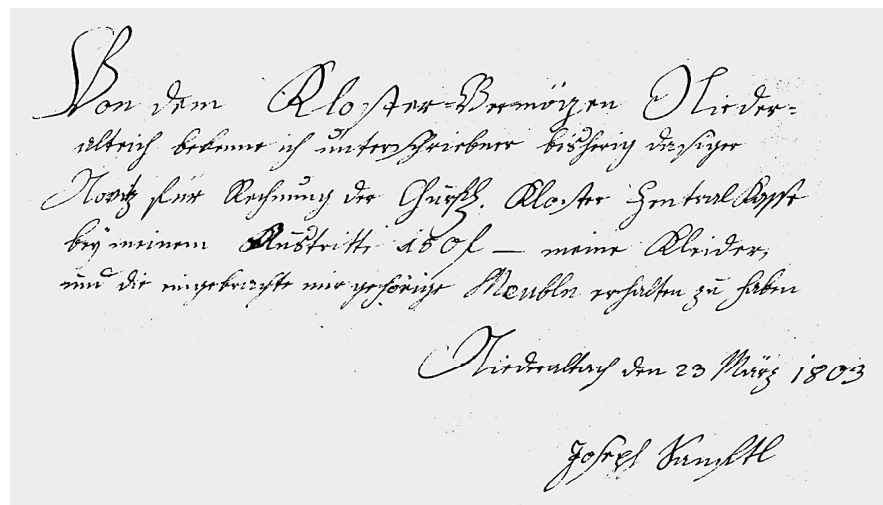 Von dem Kloster-Vermögen Nieder-
alteich bekenne ich unterschriebner bisherig dasiger
Noviz für Rechnung der Churfl. Kloster Zentral Kasse
bey meinem Austritte 150f — meine Kleider,
und die eingebrachte mir gehörige Meubln erhalten zu haben
Niederaltach den 23 März 1803
Joseph